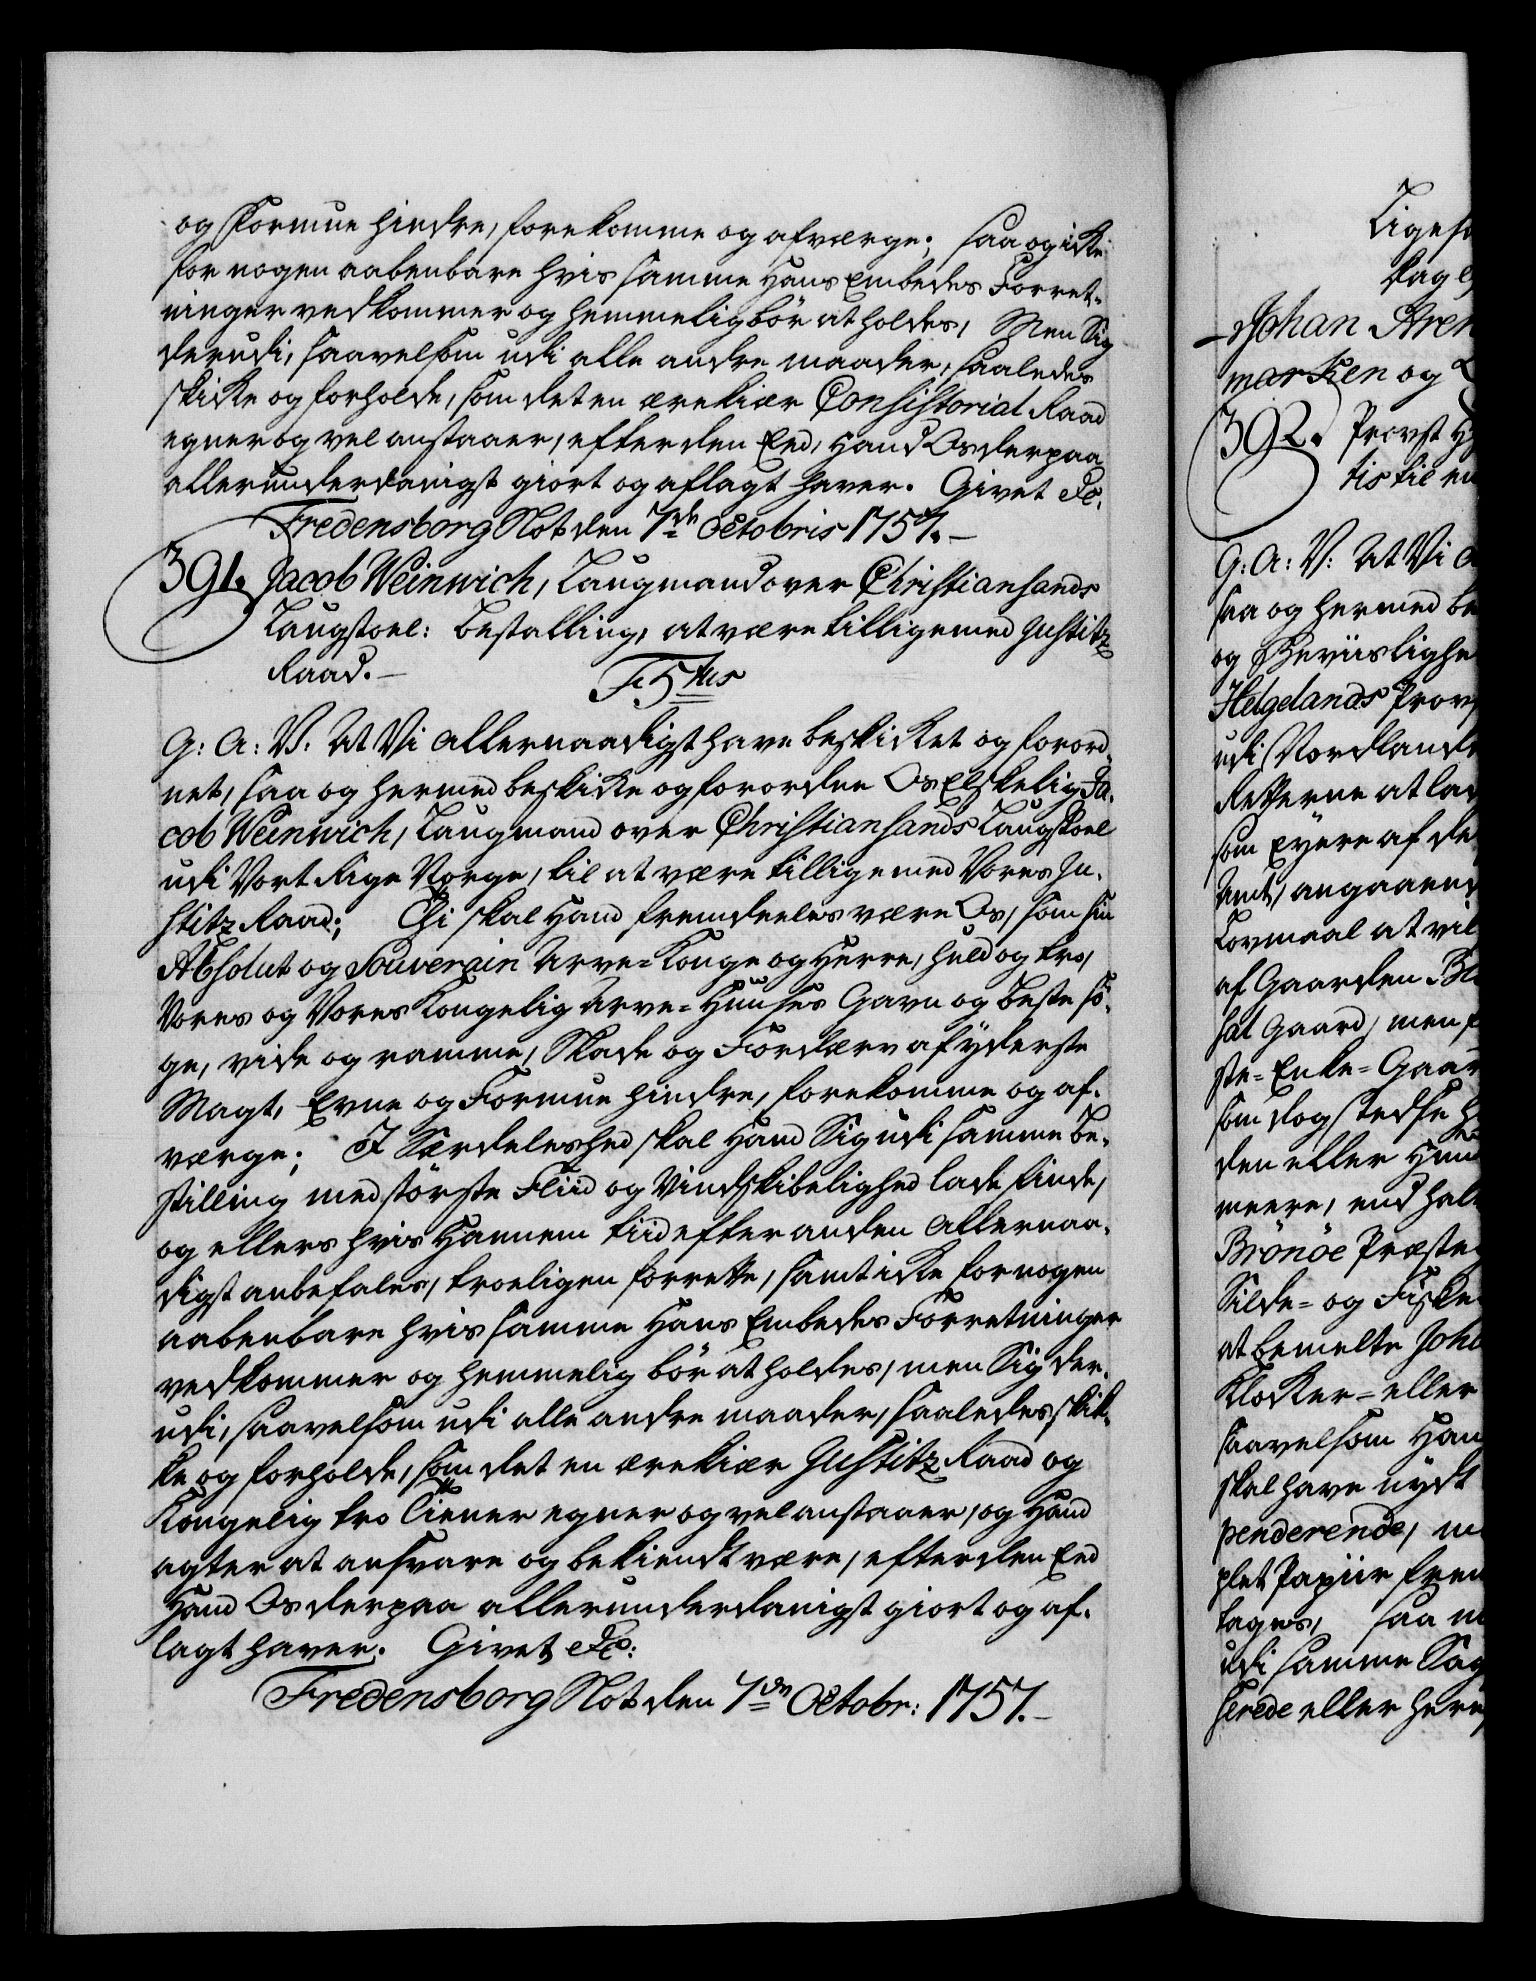 og Formue hindre, forekomme og afværge; saa og icke
for nogen aabenbare hvis samme Hans Embedes Forret-
ninger vedkommer og hemmelig bör at holdes, Men Sig
derudi, saavelsom udi alle andre maader, saaledes
skicke og forholde, som det en ærekiær Consistorial Raad
egner og vel anstaaer, efter den Eed, Hand Os derpaa
allerunderdanigst giort og aflagt haver. Givet &c.
Fredensborg Slot den 7de Octobris 1757.
391. Jacob Weinwich, Laugmand over Christiansands
Laugstoel: Bestalling, at være tillige med Justitz
Raad.
F. 5tus
G: A: V: At Vi allernaadigst have beskicket og forord-
net, saa og hermed beskicke og forordne Os Elskelig Ja-
cob Weinwich, Laugmand over Christiansands Laugstoel
udi Vort Rige Norge, til at være tillige med Vores Ju-
stitz Raad; Thi skal Hand fremdeeles være Os, som sin
Absolut og Souverain Arve-Konge og Herre, huld og tro,
Vores og Vores Kongelig Arve-Huuses Gavn og Beste sö-
ge, vide og ramme, Skade og Fordærv af yderste
Magt, Evne og Formue hindre, forekomme og af-
værge; I Særdeleshed skal Hand Sig udi samme Be-
stilling med störste Fliid og Vindskibelighed lade finde,
og ellers hvis Hannem tiid efter anden Allernaa-
digst anbefales, troeligen forrette, samt icke for nogen
aabenbare hvis samme Hans Embedes Forretninger
vedkommer og hemmelig bör at holdes, men Sig der-
udi, saavelsom udi alle andre maader, saaledes skik-
ke og forholde, som det en ærekiær Justitz Raad og
Kongelig tro Tiener egner og vel anstaaer, og Hand
agter at ansvare og bekiendt være, efter den Eed
Hand Os derpaa allerunderdanigst giort og af-
lagt haver. Givet &c:
Fredensborg Slot den 7de Octobr: 1757.
Ligesaa
Johan Aren
marken og
392. Provst
tis til en
G: A: V: At Vi a
saa og hermed be
og Beviislighe
Helgelands Prov
udi Nordlande
Retterne at lad
som Eyere af de
Amt, angaaend
Lovmaal at vil
af Gaarden
sat Gaard, men
ste-Enke-Gaar
som dog stedse
den eller
meere, end hal
Brönöe Præste
Silde- og Fiske
at bemelte Joha
Klocker- eller
saavelsom Han
skal have nydt
penderende,
plet Papiir frem
tages, saa
udi samme Sag
serede eller her